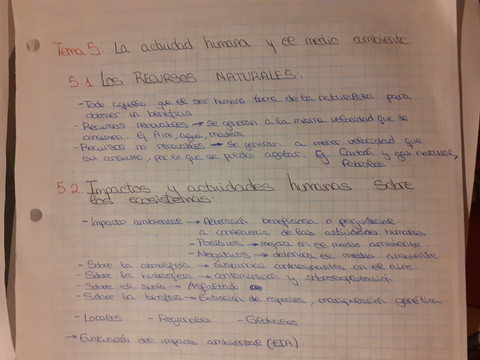 Tema 5. La actividad humana y el medio ambiente.
5.1. LOS RECURSOS NATURALES.
- Todo aquello que el ser humano toma de la naturaleza para
obtener un beneficio
- Recursos renovables → se generan a la misma velocidad que se
consumen. Ej Aire, agua, madera
- Recursos no renovables → Se generan a menor velocidad que
su consumo, por lo que se pueden agotar. Ej Carbón y gas natural,
Petróleo
5.2. Impactos y actividades humanas sobre
los ecosistemas.
- Impacto ambiental → Alteración beneficiosa o perjudicial
a consecuencia de las actividades humanas
- Positivos → mejora en el medio ambiente
- Negativos → deteriora el medio ambiente
- Sobre la atmósfera → sustancias contaminantes en el aire.
- Sobre la hidrosfera → contaminación y sobreexplotación
- Sobre el suelo → Asfaltado
- Sobre la biosfera → Extinción de especies, manipulación genética
- Locales - Regionales - Globales
→ Evaluación del impacto ambiental (EIA)